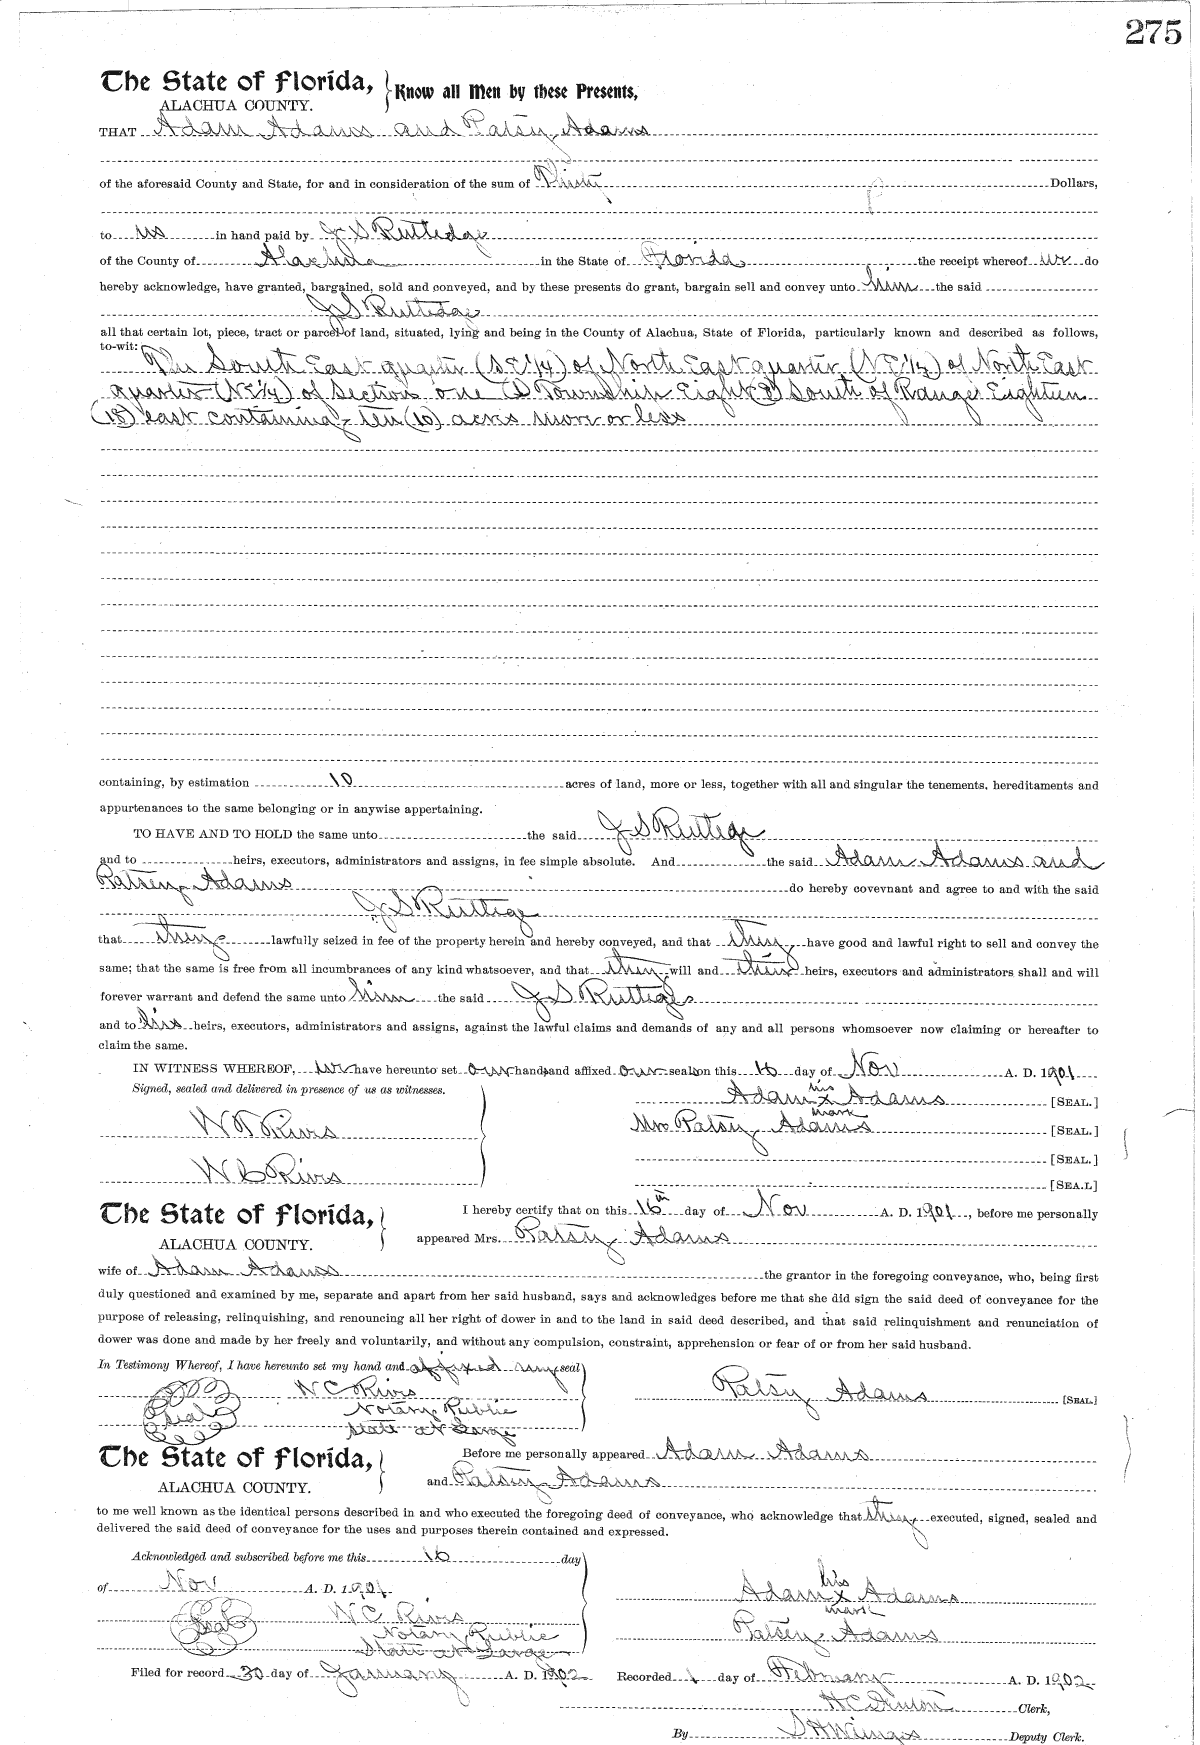 275
The State of Florida, Know all Men by these Presents,
ALACHUA COUNTY.
THAT Adam Adams and Patsy Adams
of the aforesaid County and State, for and in consideration of the sum of Thirty Dollars,
to us in hand paid by J S Rutledge
of the County of Alachua in the State of Florida the receipt whereof we do
hereby acknowledge, have granted, bargained, sold and conveyed, and by these presents do grant, bargain sell and convey unto him the said
J S Rutledge
all that certain lot, piece, tract or parcel of land, situated, lying and being in the County of Alachua, State of Florida, particularly known and described as follows,
to-wit: The South East quarter (S.E.1/4) of North East quarter (N.E.1/4) of North East
quarter (N.E1/4) of Section one (1) Township Eight (8) South of Range Eighteen
(18) east containing Ten (10) acres more or less
containing, by estimation 10 acres of land, more or less, together with all and singular the tenements, hereditaments and
appurtenances to the same belonging or in anywise appertaining.
TO HAVE AND TO HOLD the same unto the said J S Rutlege
and to heirs, executors, administrators and assigns, in fee simple absolute. And the said Adam Adams and
Patsey Adams do hereby covevnant and agree to and with the said
J S Rutlege
that they lawfully seized in fee of the property herein and hereby conveyed, and that they have good and lawful right to sell and convey the
same; that the same is free from all incumbrances of any kind whatsoever, and that they will and their heirs, executors and administrators shall and will
forever warrant and defend the same unto him the said J S Rutlege
and to his heirs, executors, administrators and assigns, against the lawful claims and demands of any and all persons whomsoever now claiming or hereafter to
claim the same.
IN WITNESS WHEREOF, we have hereunto set our hands and affixed our seals on this 16 day of Nov A. D. 1901
Signed, sealed and delivered in presence of us as witnesses.
his
Adam x Adams [SEAL.]
mark
W R Rivers Mrs Patsy Adams [SEAL.]
[SEAL.]
W C Rivers
[SEA.L]
The State of Florida, I hereby certify that on this 16th day of Nov A. D. 1901, before me personally
ALACHUA COUNTY. appeared Mrs. Patsy Adams
wife of Adam Adams the grantor in the foregoing conveyance, who, being first
duly questioned and examined by me, separate and apart from her said husband, says and acknowledges before me that she did sign the said deed of conveyance for the
purpose of releasing, relinquishing, and renouncing all her right of dower in and to the land in said deed described, and that said relinquishment and renunciation of
dower was done and made by her freely and voluntarily, and without any compulsion, constraint, apprehension or fear of or from her said husband.
In Testimony Whereof, I have hereunto set my hand and affixed my seal
W C Rivers Patsy Adams [SEAL.]
Seal Notary Public
State at Large
The State of Florida, Before me personally appeared Adam Adams
ALACHUA COUNTY. and Patsey Adams
to me well known as the identical persons described in and who executed the foregoing deed of conveyance, who acknowledge that they executed, signed, sealed and
delivered the said deed of conveyance for the uses and purposes therein contained and expressed.
Acknowledged and subscribed before me this 16 day
of Nov A. D. 1901
his
Adam x Adams
mark
Seal W C Rivers
Notary Public Patsey Adams
State at Large
Filed for record 30 day of January A. D. 1902 Recorded 1 day of February A. D. 1902
H C Denton Clerk,
By S H Wienges Deputy Clerk.